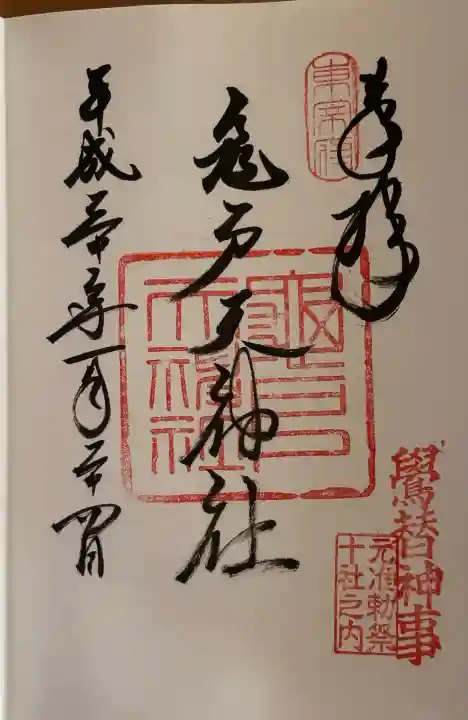 奉拝
東宰府
亀戸天神社
龜戸
天神社
平成三十年一月二十四日
鷽替神事
元准勅祭
十社之内